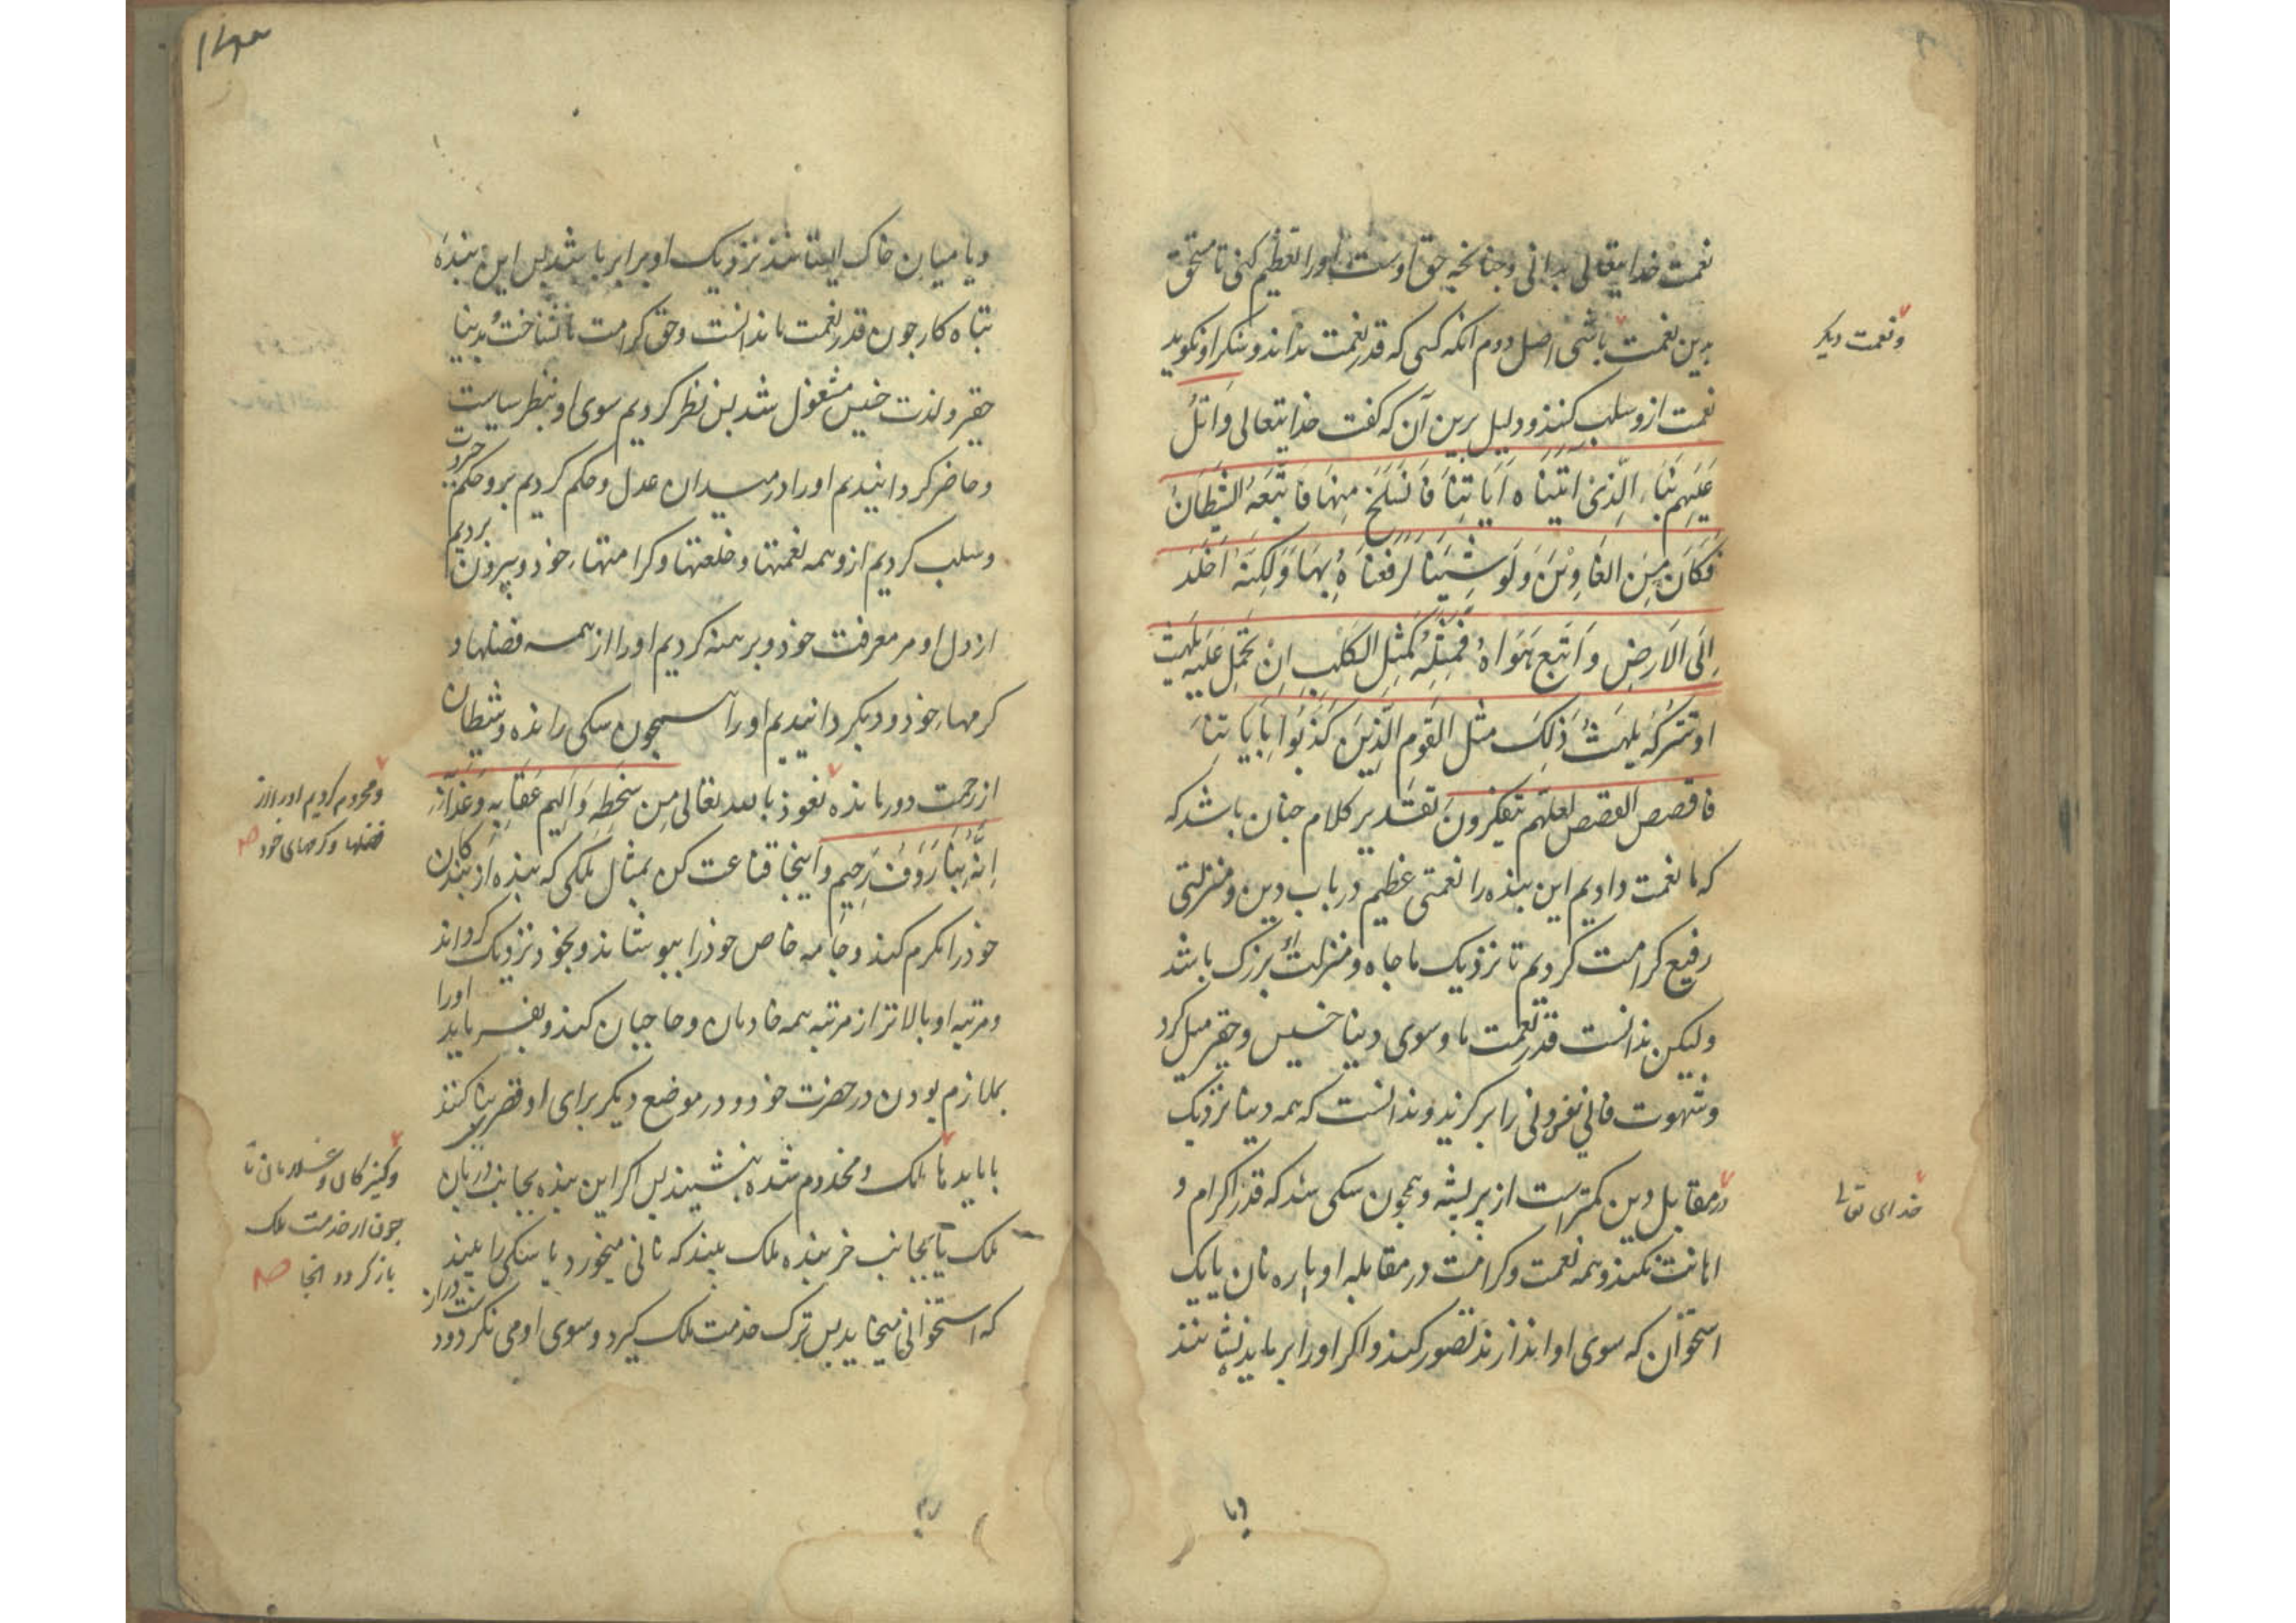 نعمت خدایتعالی بدانی و چنانچه حق اوست اورا تعظیم کنی تا مستحق
بدین نعمت باشی اصل دوم آنکه کسی که قدر نعمت نداند و شکر او نگوید
و نعمت دیگر
نعمت ازو سلب کنند و دلیل برین آن که گفت خدایتعالی وَاتْلُ
عَلَیهِم نَبَاَ الَّذی اتَیناه آیَاتِنَا فَانسَلَخَ مِنهَا فَاَتبَعَهُ الشَّیطَانُ
فَکَانَ مِنَ الغَاوِینَ وَلَو شِئنَا لَرَفَعنَاهُ بِهَا وَلَکِنَّهُ اَخلَدَ
اِلَی الاَرضِ وَاتَّبَعَ هَوَاهُ فَمَثَلُهُ کَمَثَلِ الکَلبِ اِنْ تَحمِل عَلَیهِ یَلهَث
اوتَترُکهُ یَلهَثْ ذَلِکَ مَثَل القَومِ الَّذِینَ کَذَّبُوا بِاَیَاتِنَا
فاقصص القصص لعلهم یتفکرون تقدیر کلام چنان باشد که
که ما نعمت دادیم این بنده را نعمتی عظیم در باب دین و منزلتی
رفیع کرامت کردیم تا نزدیک ما جاه و منزلت بزرگ باشد
ولیکن ندانست قدر نعمت ما و سوی دنیا خسیس و حقیر میل کرد
و شهوت فانی نفس دنی را برگزید و ندانست که همه دنیا نزدیک
خدای تعالی
در مقابل دین کمترست از پر پشه و همچون سگی شد که قدر اکرام و
اهانت نکند و همه نعمت و کرامت در مقابله او پاره نان یا یک
استخوان که سوی او اندازند تصور کند و اگر اورا بر ماید نشانند
ویا میان خاک ایستانند نزدیک او برابر باشد پس این بندهٔ
تباه کار چون قدر نعمت ما ندانست و حق کرامت ما نشناخت و بدنیا
حقیر و لذت خسیس مشغول شد پس نظر کردیم سوی او بنظر سیاست
و حاضر گردانیدیم اورا در میدان عدل و حکم کردیم برو حکم جبروت
و سلب کردیم ازو همه نعمتها و خلعتها و کرامتهاء خود و بیرون بردیم
از دل او مر معرفت خود و برهنه کردیم اورا از همه فضلها و
کرمهاء خود و دیگر دانیدیم اورا همچون سگی رانده و شیطان
از رحمت دور مانده نعوذ بالله تعالی مِن سَخَطِه وَاَلِیمِ عِقَابِهِ وَعَذَابِهِ
و محروم کردیم اورا از
فضلها و کرمهای خود صح
اِنَّهُ بِنَا رَؤفٌ رَحِیم و اینجا قناعت کن بمثال ملکی که بندهٔ از بندگان
خود را مکرم کند و جامه خاص خود را بپوشاند و بخود نزدیک گرداند
و مرتبه او بالاتر از مرتبه همه خادمان و حاجبان کند و بفرماید اورا
بملازم بودن در حضرت خود و در موضع دیگر برای او قصر بنا کنند
و کنیزکان و غلامان تا
چون از خدمت ملک
باز گردد آنجا صح
ملک و مخدوم شده بنشیند پس اگر این بنده بجانب دربان
ملک یا بجانب خربنده ملک بیند که نانی میخورد یا سگی را بیند
که استخوانی میخاید پس ترک خدمت ملک گیرد و سوی او می نگرد و دست دراز